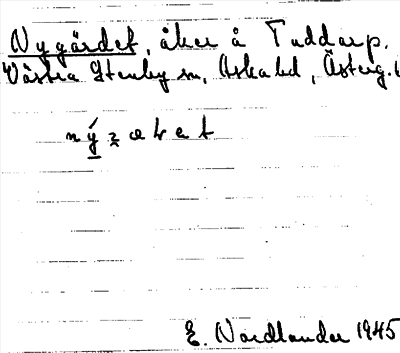 Nygärdet, åker å Tuddarp.
Västra Stenby sn, Aska hd, Österg.
E. Nordlander 1945